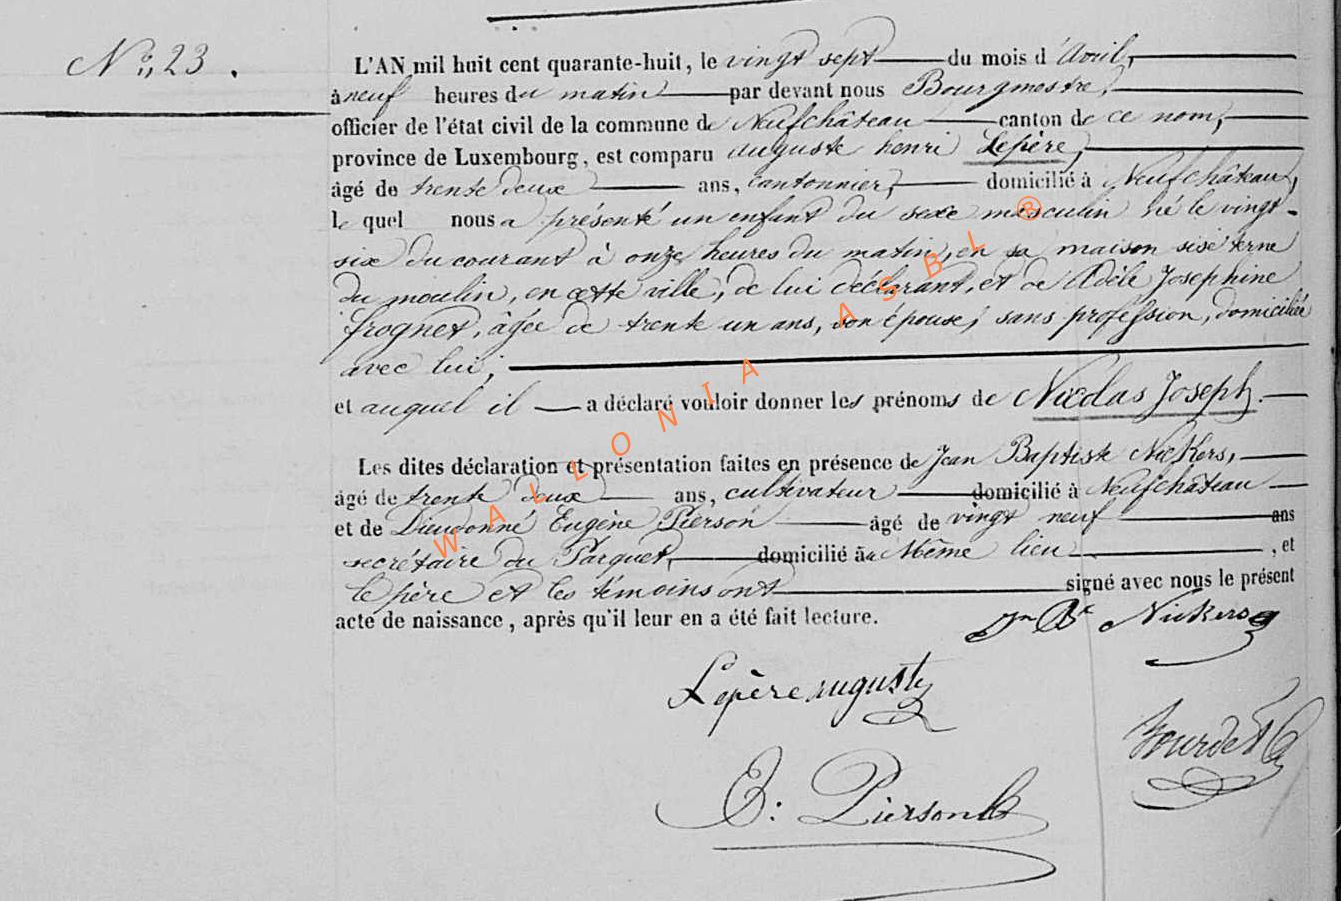 N° 23.
L'AN mil huit cent quarante-huit, le vingt sept du mois d'Avril,
à neuf heures du matin par devant nous Bourgmestre,
officier de l'état civil de la commune de Neufchâteau canton de ce nom,
province de Luxembourg, est comparu auguste henri Lepère,
âgé de trente deux ans, cantonnier, domicilié à Neufchâteau,
le quel nous a présenté un enfant du sexe masculin né le vingt-
six du courant à onze heures du matin, en sa maison sise terne
du moulin, en cette ville, de lui déclarant, et de Adèle Josephine
frognet, âgée de trente un ans, son épouse, sans profession, domiciliée
avec lui;
et auquel il a déclaré vouloir donner les prénoms de Nicolas Joseph.
Les dites déclaration et présentation faites en présence de Jean Baptiste Nickers,
âgé de trente deux ans, cultivateur domicilié à Neufchâteau
et de Dieudonné Eugène Pierson âgé de vingt neuf ans
secrétaire du Parquet, domicilié au Même lieu, et
le père et les témoins ont signé avec nous le présent
acte de naissance, après qu'il leur en a été fait lecture.
Jn Bte Nickers
Lepère auguste
Bourdet
E: Pierson
WALLONIA ASBL ®